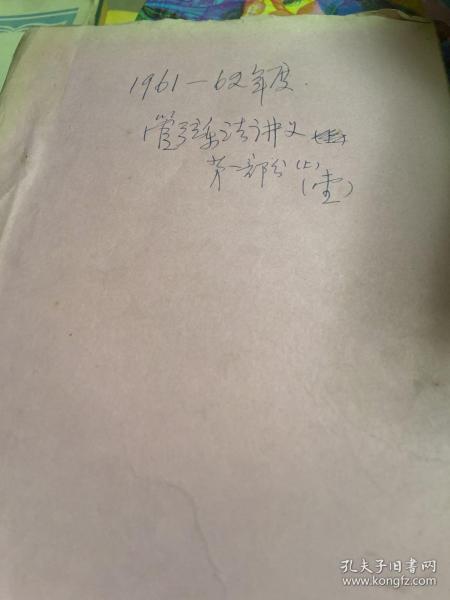 1961—62年度.
管弦乐法讲义
第一部分(上)
孔夫子旧书网
www.kongfz.com